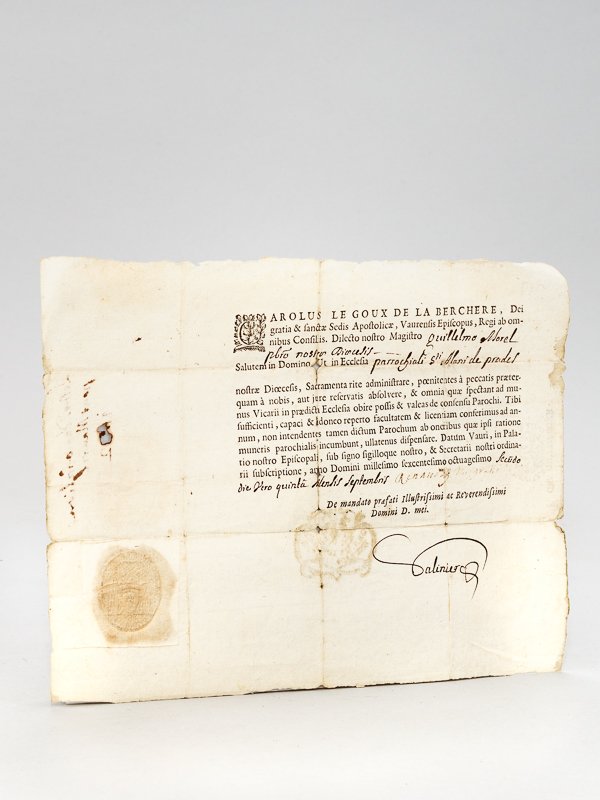 CAROLUS LE GOUX DE LA BERCHERE, Dei
gratia & sanctæ Sedis Apostolicæ, Vaurensis Episcopus, Regi ab om-
nibus Consiliis. Dilecto nostro Magistro Guillelmo Morel
pbro nostræ Diocesis
Salutem in Domino. Ut in Ecclesia parrochiali Sti Alani de prades
nostræ Diœcesis, Sacramenta rite administrare, pœnitentes à peccatis præter-
quam à nobis, aut jure reservatis absolvere, & omnia quæ spectant ad mu-
nus Vicarii in prædicti Ecclesia obire possis & valeas de consensu Parochi. Tibi
sufficienti, capaci & idoneo reperto facultatem & licentiam conferimus ad an-
num, non intendentes tamen dictum Parochum ab oneribus quæ ipsi ratione
muneris parochialis incumbunt, ullatenus dispensare. Datum Vauri, in Pala-
tio nostro Episcopali, sub signo sigilloque nostro, & Secretarii nostri ordina-
rii subscriptione, anno Domini millesimo sexcentesimo octuagesimo secundo
die Vero quintâ Mensis Septembris
De mandato præfati Illustrissimi ac Reverendissimi
Domini D. mei.
Saliniere